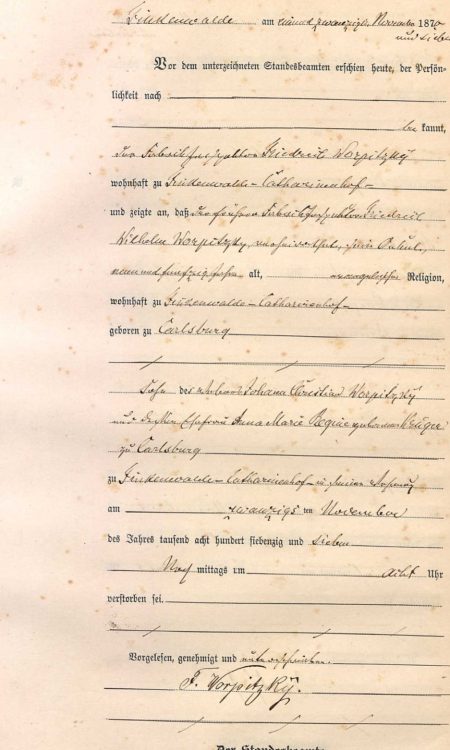 Finkenwalde am einundzwanzigsten November 1870
und sieben
Vor dem unterzeichneten Standesbeamten erschien heute, der Persön-
lichkeit nach
be kannt,
der Fabrikinspektor Friedrich Worpitzky
wohnhaft zu Finkenwalde-Catharinenhof-
und zeigte an, daß der frühere Fabrikinspektor Friedrich
Wilhelm Worpitzky, verheirathet, sein
neun und fünfzig Jahre alt, evangelischer Religion,
wohnhaft zu Finkenwalde-Catharinenhof-
geboren zu Carlsburg
Sohn des Johann Christian Worpitzky
und dessen Ehefrau Anna Marie Regine geborene Krüger
zu Carlsburg
zu Finkenwalde-Catharinenhof-in seiner Wohnung
am zwanzigs ten November
des Jahres tausend acht hundert siebenzig und sieben
Nach mittags um acht Uhr
verstorben sei.
Vorgelesen, genehmigt und unterschrieben.
F. Worpitzky.
Der Standesbeamte